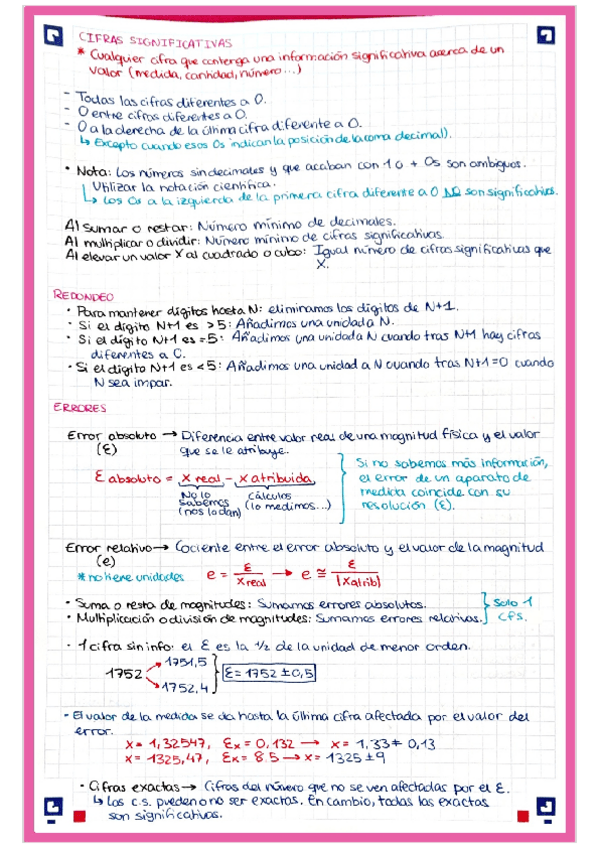 CIFRAS SIGNIFICATIVAS
* Cualquier cifra que contenga una información significativa acerca de un
valor (medida, cantidad, número...)
- Todas las cifras diferentes a 0.
- 0 entre cifras diferentes a 0.
- 0 a la derecha de la última cifra diferente a 0.
↳ Excepto cuando esos 0s indican la posición de la coma decimal).
• Nota: Los números sin decimales y que acaban con 1 o + 0s son ambiguos.
Utilizar la notación científica.
↳ Los 0s a la izquierda de la primera cifra diferente a 0 NO son significativos.
Al sumar o restar: Número mínimo de decimales.
Al multiplicar o dividir: Número mínimo de cifras significativas.
Al elevar un valor X al cuadrado o cubo: Igual número de cifras significativas que
X.
REDONDEO
• Para mantener dígitos hasta N: eliminamos los dígitos de N+1.
• Si el dígito N+1 es >5: Añadimos una unidad a N.
• Si el dígito N+1 es =5: Añadimos una unidad a N cuando tras N+1 hay cifras
diferentes a 0.
• Si el dígito N+1 es <5: Añadimos una unidad a N cuando tras N+1=0 cuando
N sea impar.
ERRORES
Error absoluto → Diferencia entre valor real de una magnitud física y el valor
(Ɛ) que se le atribuye.
Ɛ absoluto = X real - X atribuida
No lo sabemos (nos lo dan)
cálculos (lo medimos...)
Si no sabemos más información,
el error de un aparato de
medida coincide con su
resolución (Ɛ).
Error relativo → Cociente entre el error absoluto y el valor de la magnitud
(e)
* no tiene unidades e = Ɛ / X real → e ≅ Ɛ / |X atrib|
• Suma o resta de magnitudes: Sumamos errores absolutos.
• Multiplicación o división de magnitudes: Sumamos errores relativos.
} Solo 1
c.f.s.
• 1 cifra sin info: el Ɛ es la 1/2 de la unidad de menor orden.
1752 → 1751,5
→ 1752,4
Ɛ = 1752 ± 0,5
- El valor de la medida se da hasta la última cifra afectada por el valor del
error.
X = 1,32547, Ɛx = 0,132 → X = 1,33 ± 0,13
X = 1325,47, Ɛx = 8.5 → X = 1325 ± 9
• Cifras exactas → Cifras del número que no se ven afectadas por el Ɛ.
↳ Las c.s. pueden o no ser exactas. En cambio, todas las exactas
son significativas.